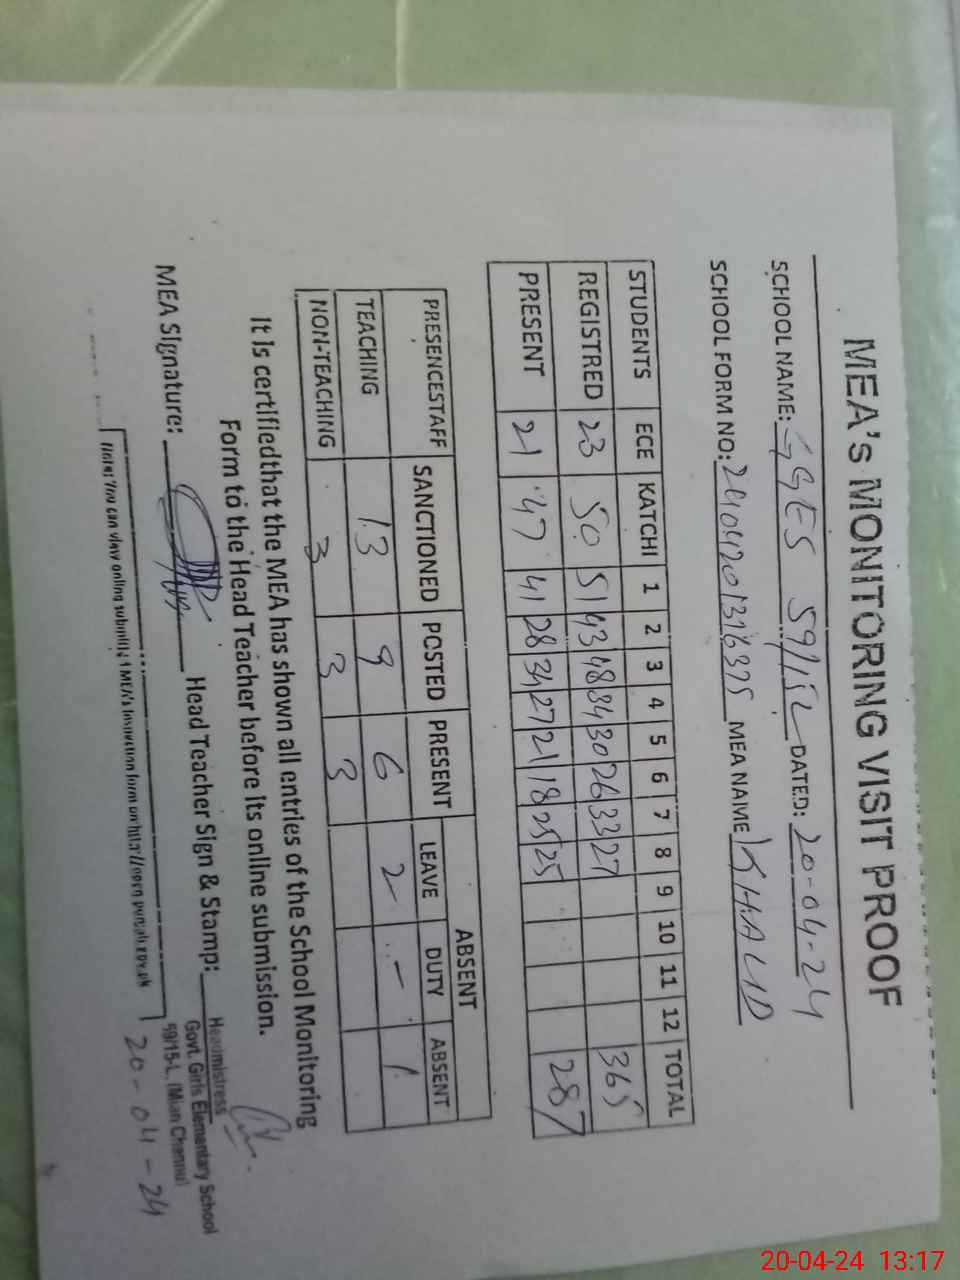 MEA's MONITORING VISIT PROOF
SCHOOL NAME: GGES 59/15L DATED: 20-04-24
SCHOOL FORM NO: 2404201316375 MEA NAME KHALID
STUDENTS ECE KATCHI 1 2 3 4 5 6 7 8 9 10 11 12 TOTAL
REGISTRED 23 50 51 43 48 34 30 26 33 27 365
PRESENT 21 47 41 28 34 27 21 18 25 25 287
PRESENCESTAFF SANCTIONED POSTED PRESENT ABSENT
LEAVE DUTY ABSENT
TEACHING 13 9 6 2 - 1
NON-TEACHING 3 3 3
It is certifiedthat the MEA has shown all entries of the School Monitoring
Form to the Head Teacher before its online submission.
MEA Signature: Head Teacher Sign & Stamp:
Headmistress
Govt. Girls Elementary School
59/15-L. (Mian Channu)
Note: You can view online submitted MEA's Inspection form on http://open.punjab.gov.pk
20-04-24
20-04-24 13:17